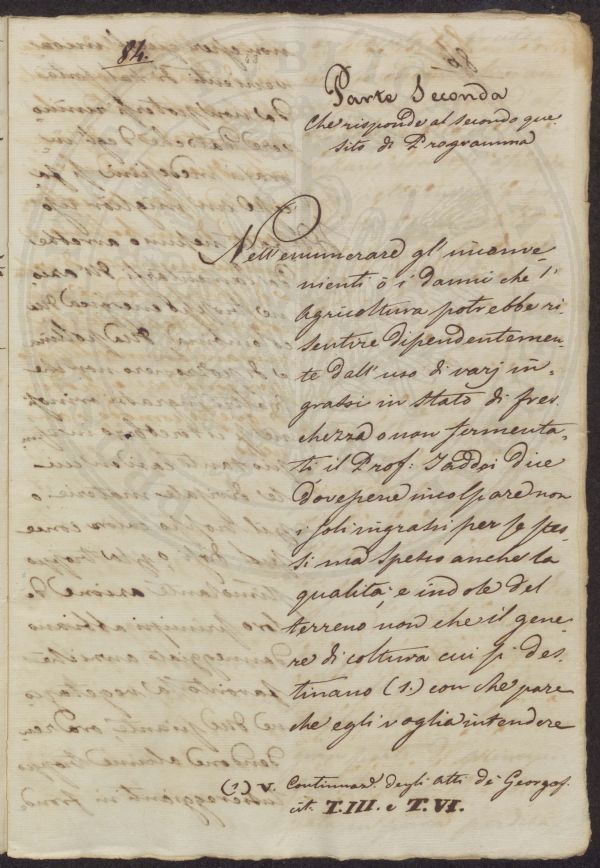 84.
Parte Seconda
Che risponde al secondo que
sito di Programma
Nell'enumerare gl'inconve
nienti ò i danni che l'
Agricoltura potrebbe ri
sentire dipendentemen
te dall'uso di varj in-
grassi in stato di fres
chezza o non fermenta-
ti il Prof: Taddei dice
dovesene incolpare non
i soli ingrassi per se stes
si ma spesso anche la
qualità, e indole del
terreno non che il gene-
re di coltura cui si des
tinano (1.) con che pare
che egli voglia intendere
(1) V. Continuaz. degli Atti de' Georgof.
cit. T.III. e T.VI.